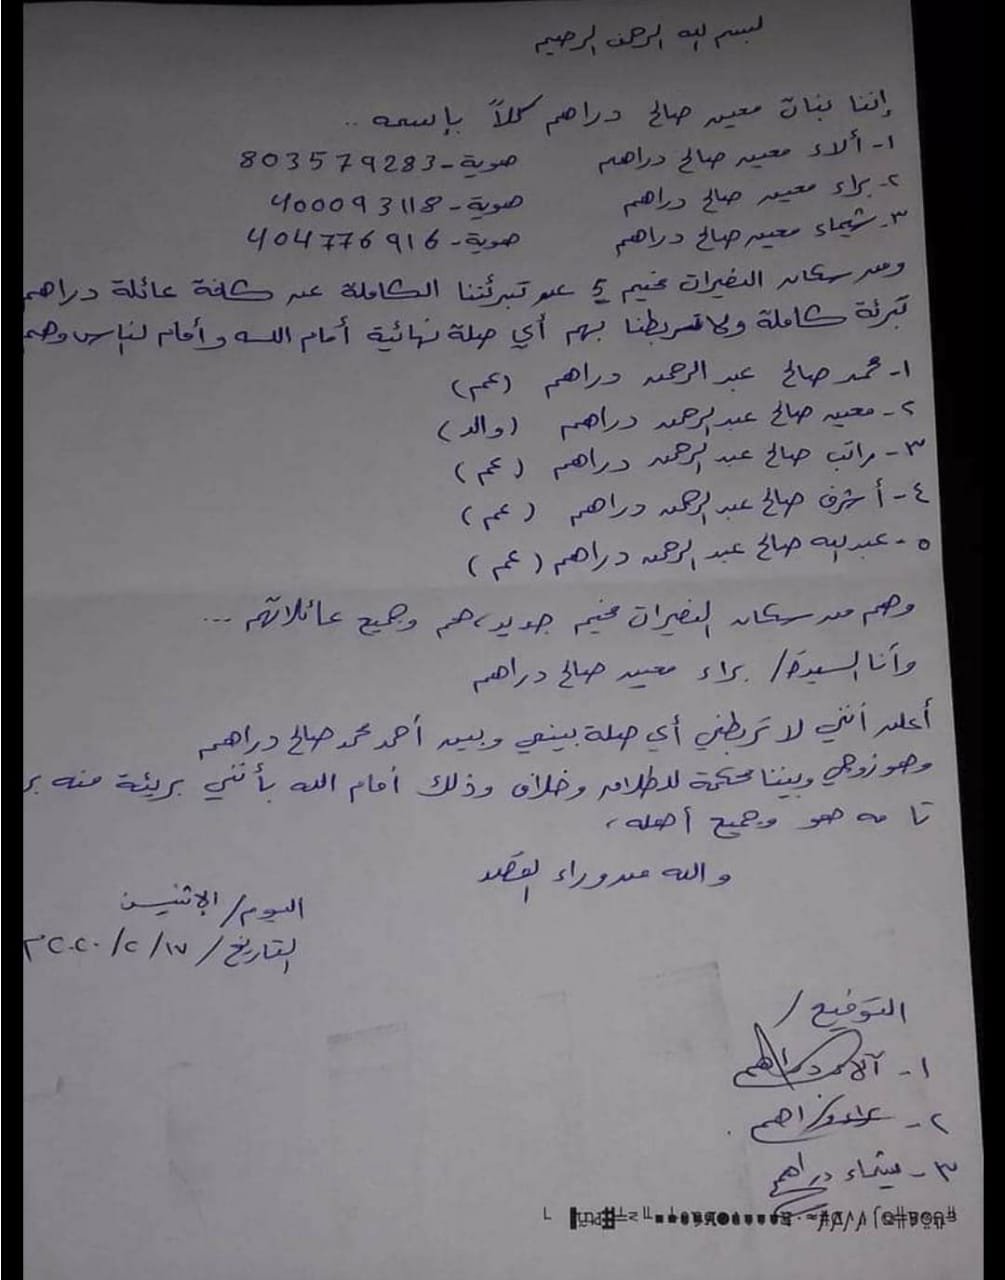 بسم الله الرحمن الرحيم
إننا بنات معين صالح دراهم كلاً بإسمه ..
١- ألاء معين صالح دراهم هوية - 803579283
٢- براء معين صالح دراهم هوية - 400093118
٣- شيماء معين صالح دراهم هوية - 404776916
ومن سكان النصيرات مخيم 5 عن تبرئتنا الكاملة عن كافة عائلة دراهم
تبرئة كاملة ولا تربطنا بهم أي صلة نهائية أمام الله وأمام الناس وهم
١- محمد صالح عبد الرحمن دراهم (عم)
٢- معين صالح عبد الرحمن دراهم (والد)
٣- راتب صالح عبد الرحمن دراهم (عم)
٤- أشرف صالح عبد الرحمن دراهم (عم)
٥- عبد الله صالح عبد الرحمن دراهم (عم)
وهم من سكان النصيرات مخيم جديد، هم وجميع عائلاتهم ...
وأنا السيدة/ براء معين صالح دراهم
أعلن أنني لا تربطني أي صلة بيني وبين أحمد محمد صالح دراهم
وهو زوجي وبيننا محكمة للطلاق وخلاف وذلك أمام الله بأنني بريئة منه بر
تا مه هو وجميع أهله،
والله من وراء القصد
اليوم/ الإثنين
التاريخ/ ١٧/٢/٢٠٢٠م
التوقيع/
١- آلاء دراهم
٢- براء دراهم
٣- شيماء دراهم